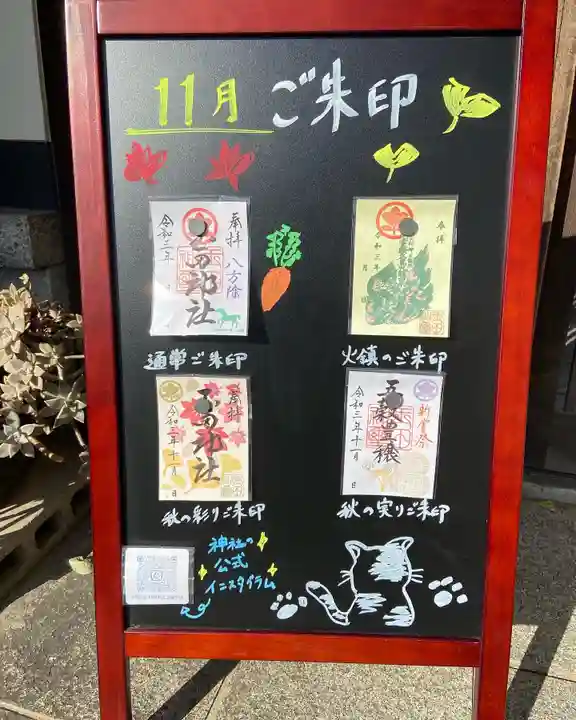 11月ご朱印
奉拝 八方除
玉田神社
令和三年 月
通常ご朱印
奉拝
令和三年 月 日
火鎮のご朱印
奉拝
玉田神社
令和三年十一月 日
秋の彩りご朱印
新嘗祭
五穀豊穣
令和三年十一月 日
秋の実りご朱印
神社の
公式
インスタグラム